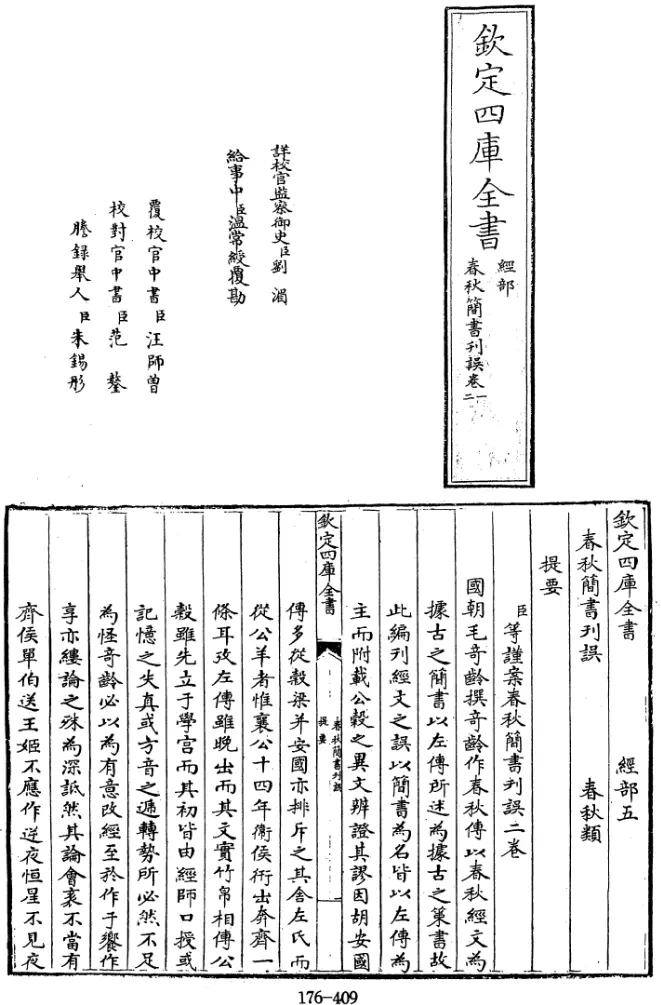 欽定四庫全書
經部
春秋簡書刊誤卷一
二
詳校官監察御史臣劉湄
給事中臣溫常綬覆勘
覆校官中書臣汪師曾
校對官中書臣范鏊
謄錄舉人臣朱錫彤
欽定四庫全書
經部五
春秋簡書刊誤
春秋類
提要
臣等謹案春秋簡書刊誤二卷
國朝毛奇齡撰奇齡作春秋傳以春秋經文為
據古之簡書以左傳所述為據古之策書故
此編刊經文之誤以簡書為名皆以左傳為
主而附載公穀之異文辨證其謬因胡安國
欽定四庫全書
春秋簡書刊誤
提要
傳多從穀梁并安國亦排斥之其舍左氏而
從公羊者惟襄公十四年衛侯衎出奔齊一
條耳攷左傳雖晚出而其文實竹帛相傳公
穀雖先立于學官而其初皆由經師口授或
記憶之失真或方音之遞轉勢所必然不足
為怪奇齡必以為有意改經至於作于饗作
享亦縷論之殊為深詆然其論會袲不當有
齊侯單伯送王姬不應作逆夜恒星不見夜
176-409